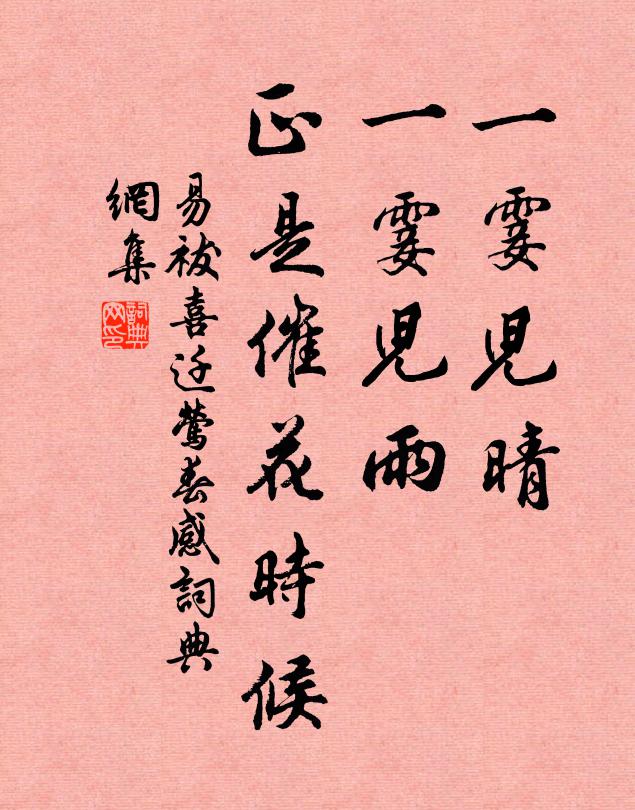 一霎兒晴
一霎兒雨
正是催花時候
易祓喜迁鶯春感詞典
網集
詞典
网印